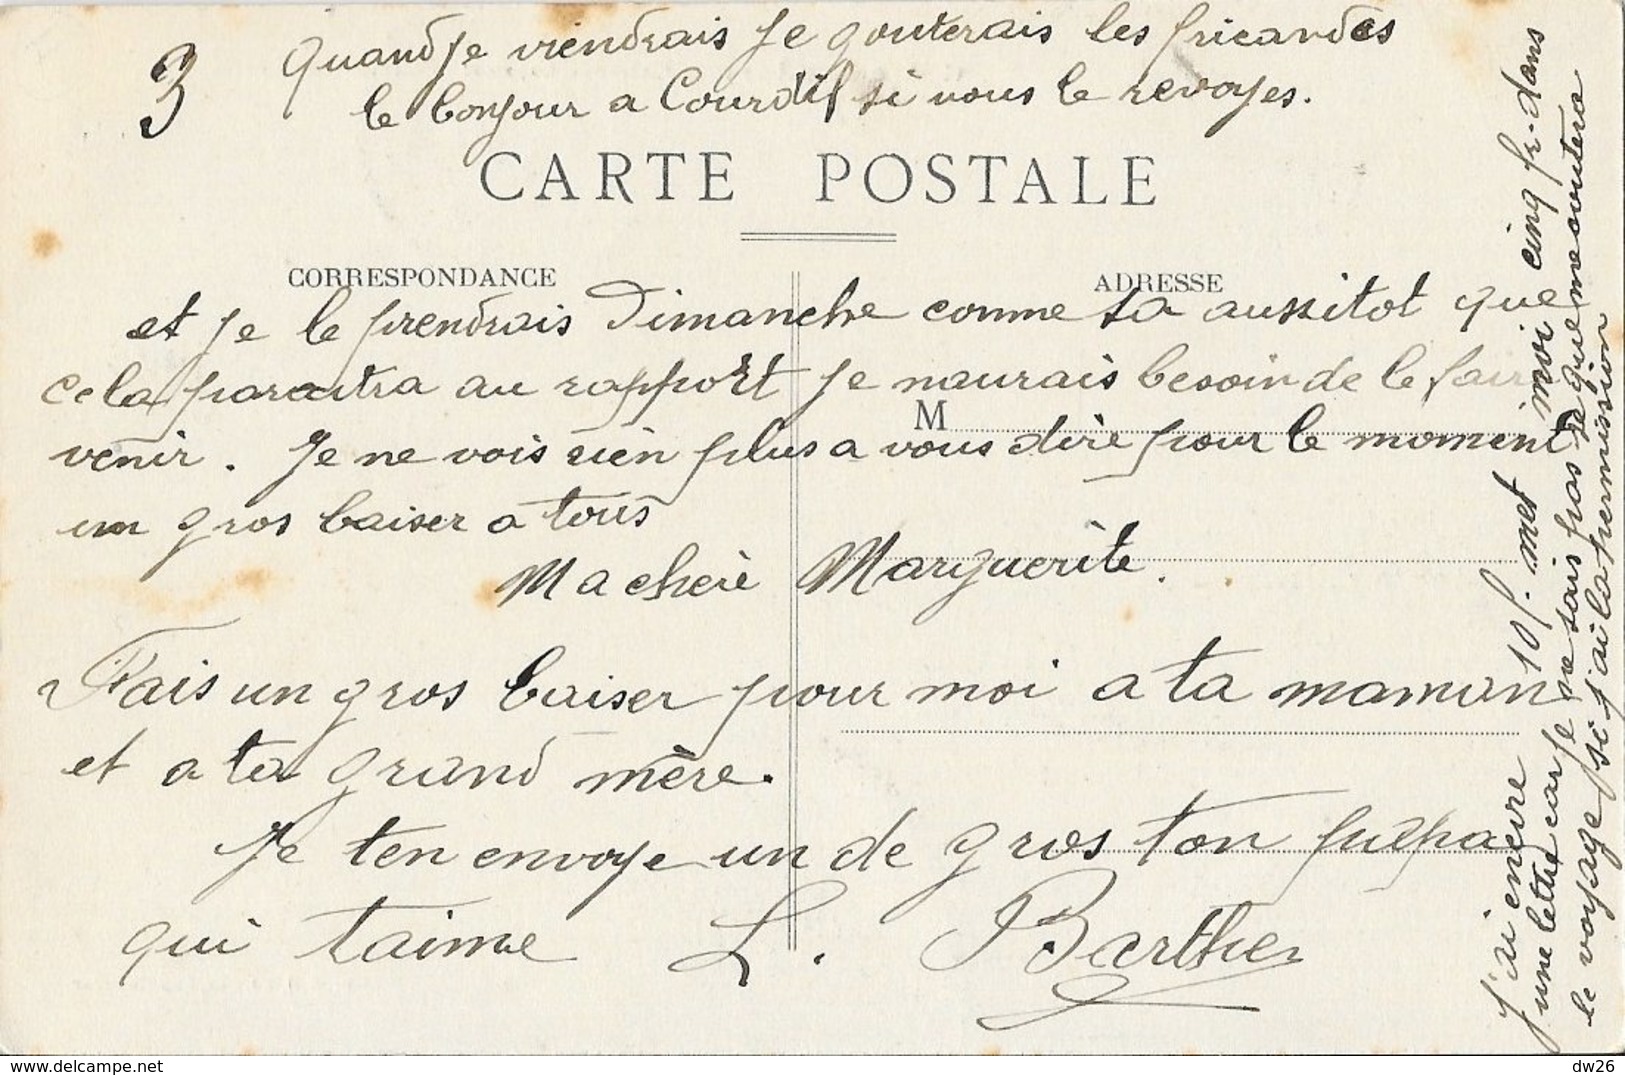 3
Quand je viendrais je gouterais les fricandos
le bonjour a Courdil si vous le revoyes.
CARTE POSTALE
CORRESPONDANCE
ADRESSE
et je le prendrais Dimanche comme sa aussitot que
cela paraitra au rapport je naurais besoin de le faire
M
venir. Je ne vois rien plus a vous dire pour le moment
un gros baiser a tous
Ma cherè Marguerite.
Fais un gros baiser pour moi a ta maman
et a ta grand mère.
Je ten envoye un de gros ton
qui taime L. Barthes
J'ai encore 10 f. met moi cinq fr. dans
une lettre car je ne sais pas se que me coutera
le voyage si j'ai la permission
dw26